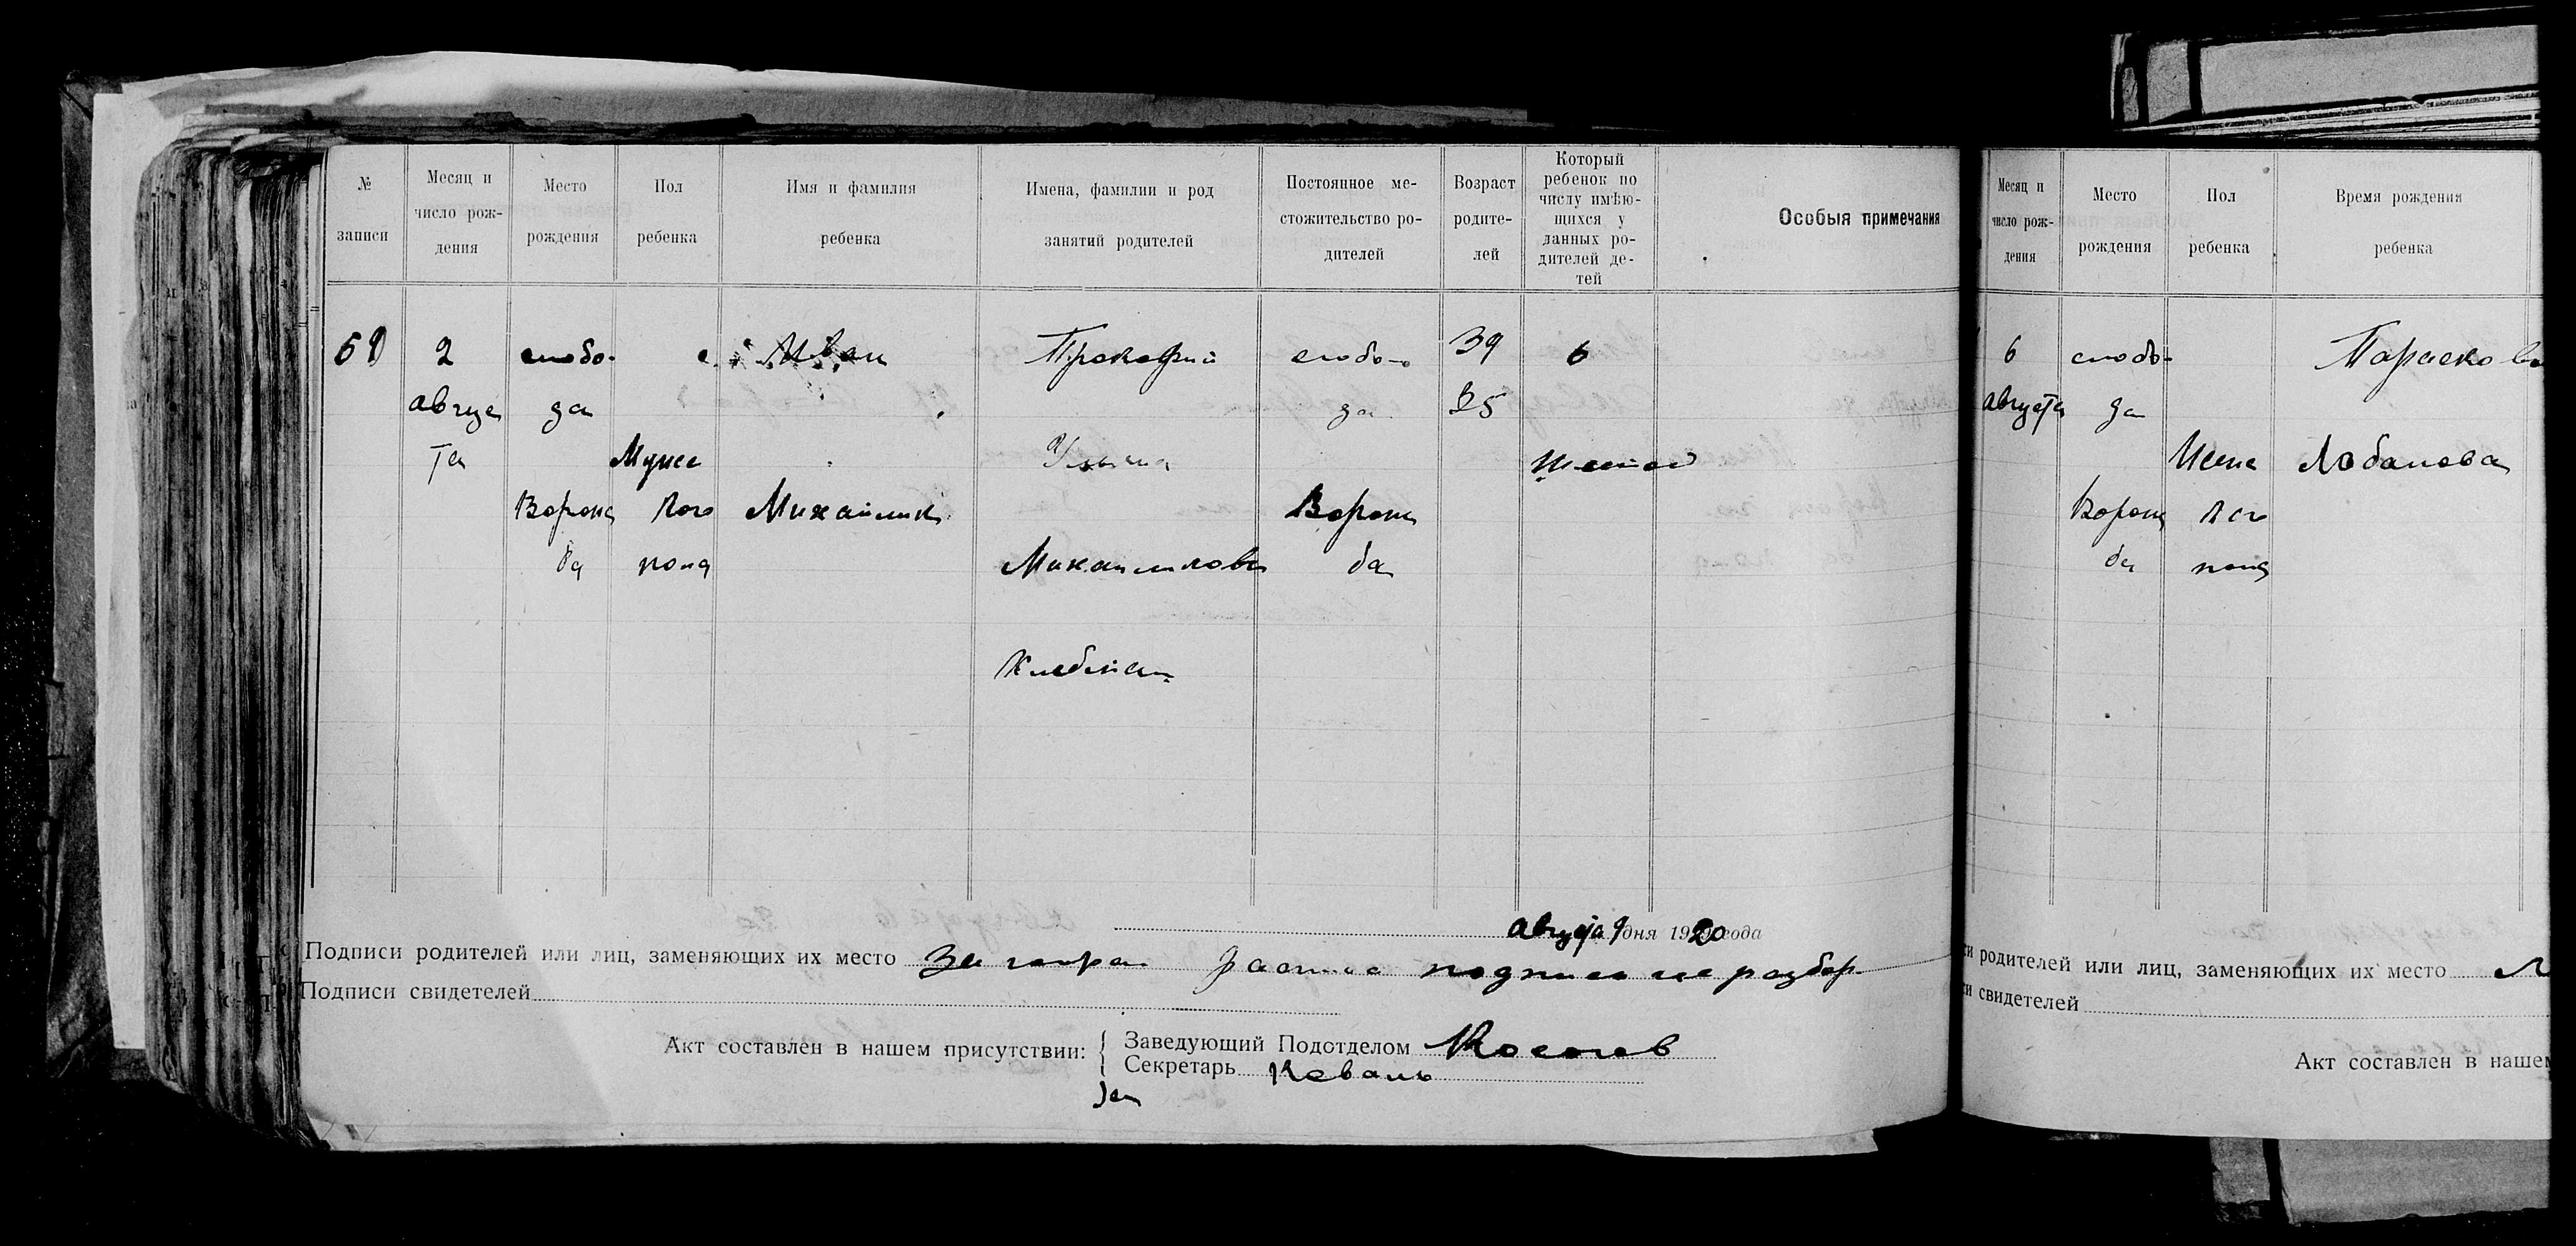 № записи
Месяц и число рождения
Место рождения
Пол ребенка
Имя и фамилия ребенка
Имена, фамилии и род занятий родителей
Постоянное местожительство родителей
Возраст родителей
Который ребенок по числу имѣющихся у данных родителей детей
Особыя примечания
2
августа
слобода
Воронаба
Мужесского пола
Иван
Михайлик
Прокофий
Ульяна
Михайловы
слобода
Воронаба
39
35
6
шестой
августа 9 дня 1920 года
Подписи родителей или лиц, заменяющих их место
подпись не разбор
Подписи свидетелей
Акт составлен в нашем присутствии:
Заведующий Подотделом
Секретарь Коваль
Месяц и число рождения
Место рождения
Пол ребенка
Время рождения ребенка
6
августа
слобода
Воронаба
пола
Параскова
Лобанова
и родителей или лиц, заменяющих их место
и свидетелей
Акт составлен в нашем